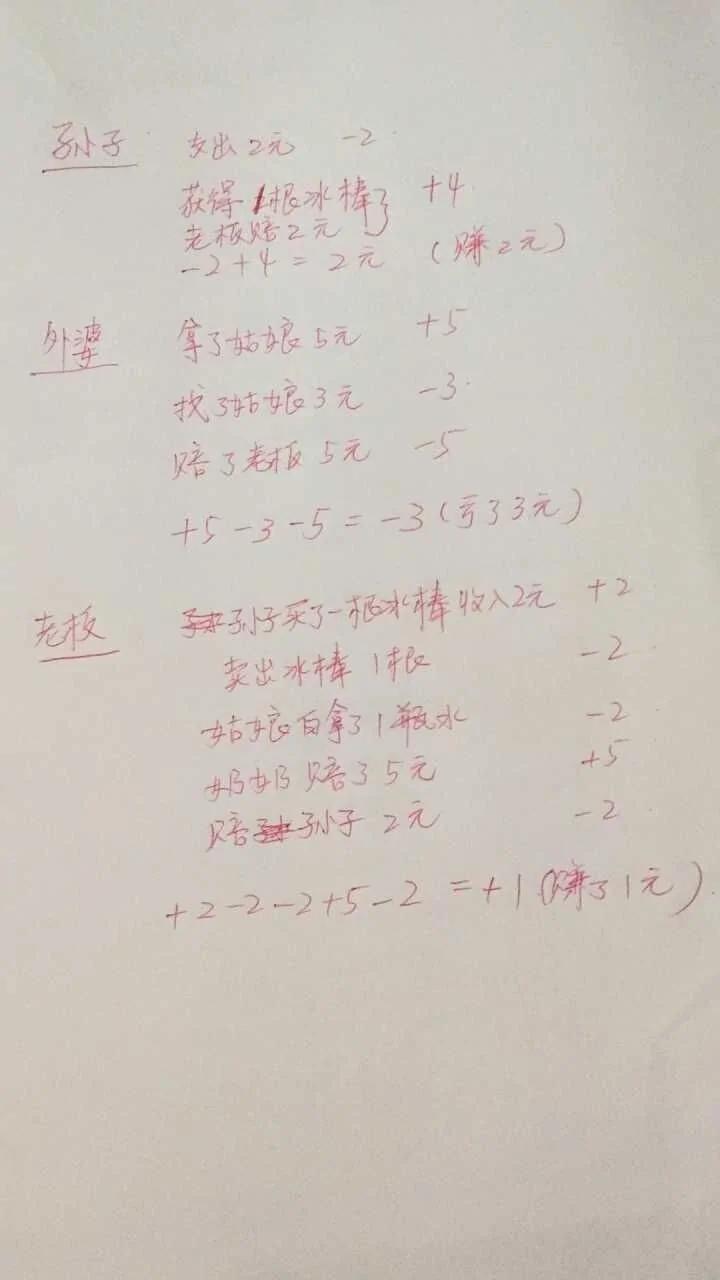 孙子 支出2元 -2
获得1根冰棒 } +4
老板赔2元
-2+4=2元 (赚2元)
外婆 拿了姑娘5元 +5
找了姑娘3元 -3
赔了老板5元 -5
+5-3-5=-3(亏了3元)
老板 孙子买了一根冰棒收入2元 +2
卖出冰棒1根 -2
姑娘白拿了1瓶水 -2
奶奶赔了5元 +5
赔孙子2元 -2
+2-2-2+5-2=+1(赚了1元)